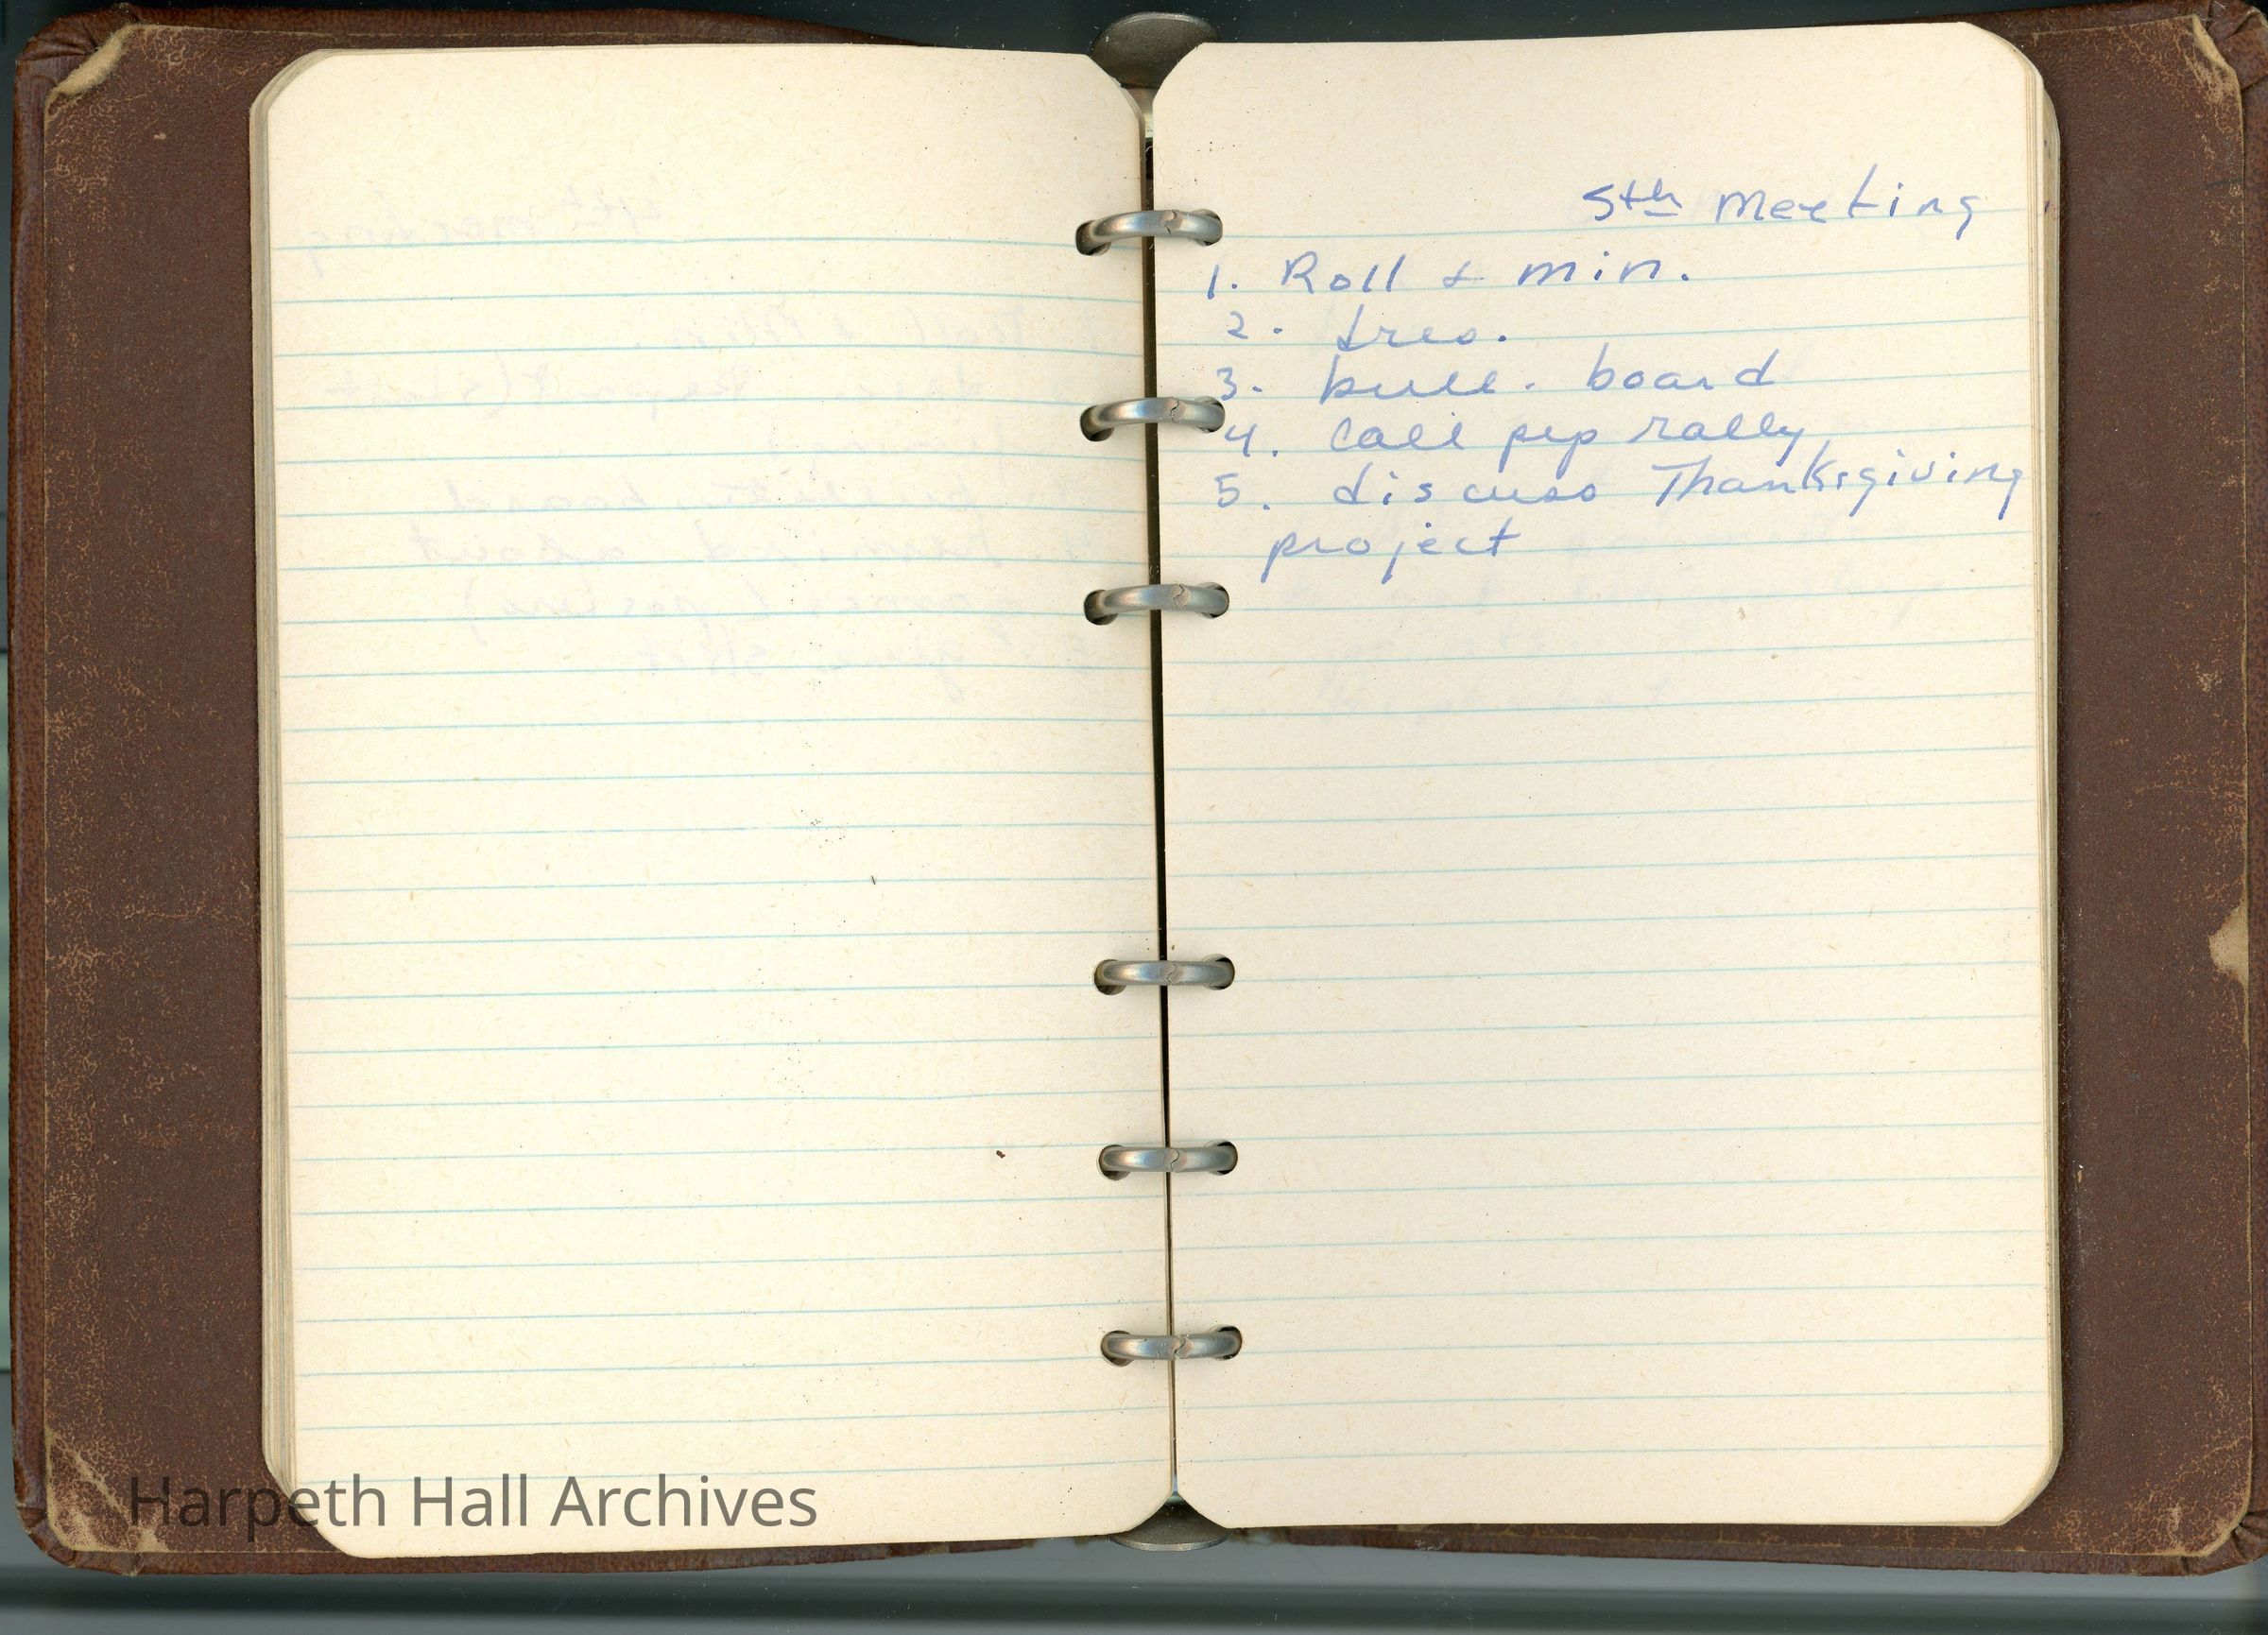 5th Meeting
1. Roll & min.
2. tres.
3. bull. board
4. Call pep rally
5. discuss Thanksgiving
project
Harpeth Hall Archives